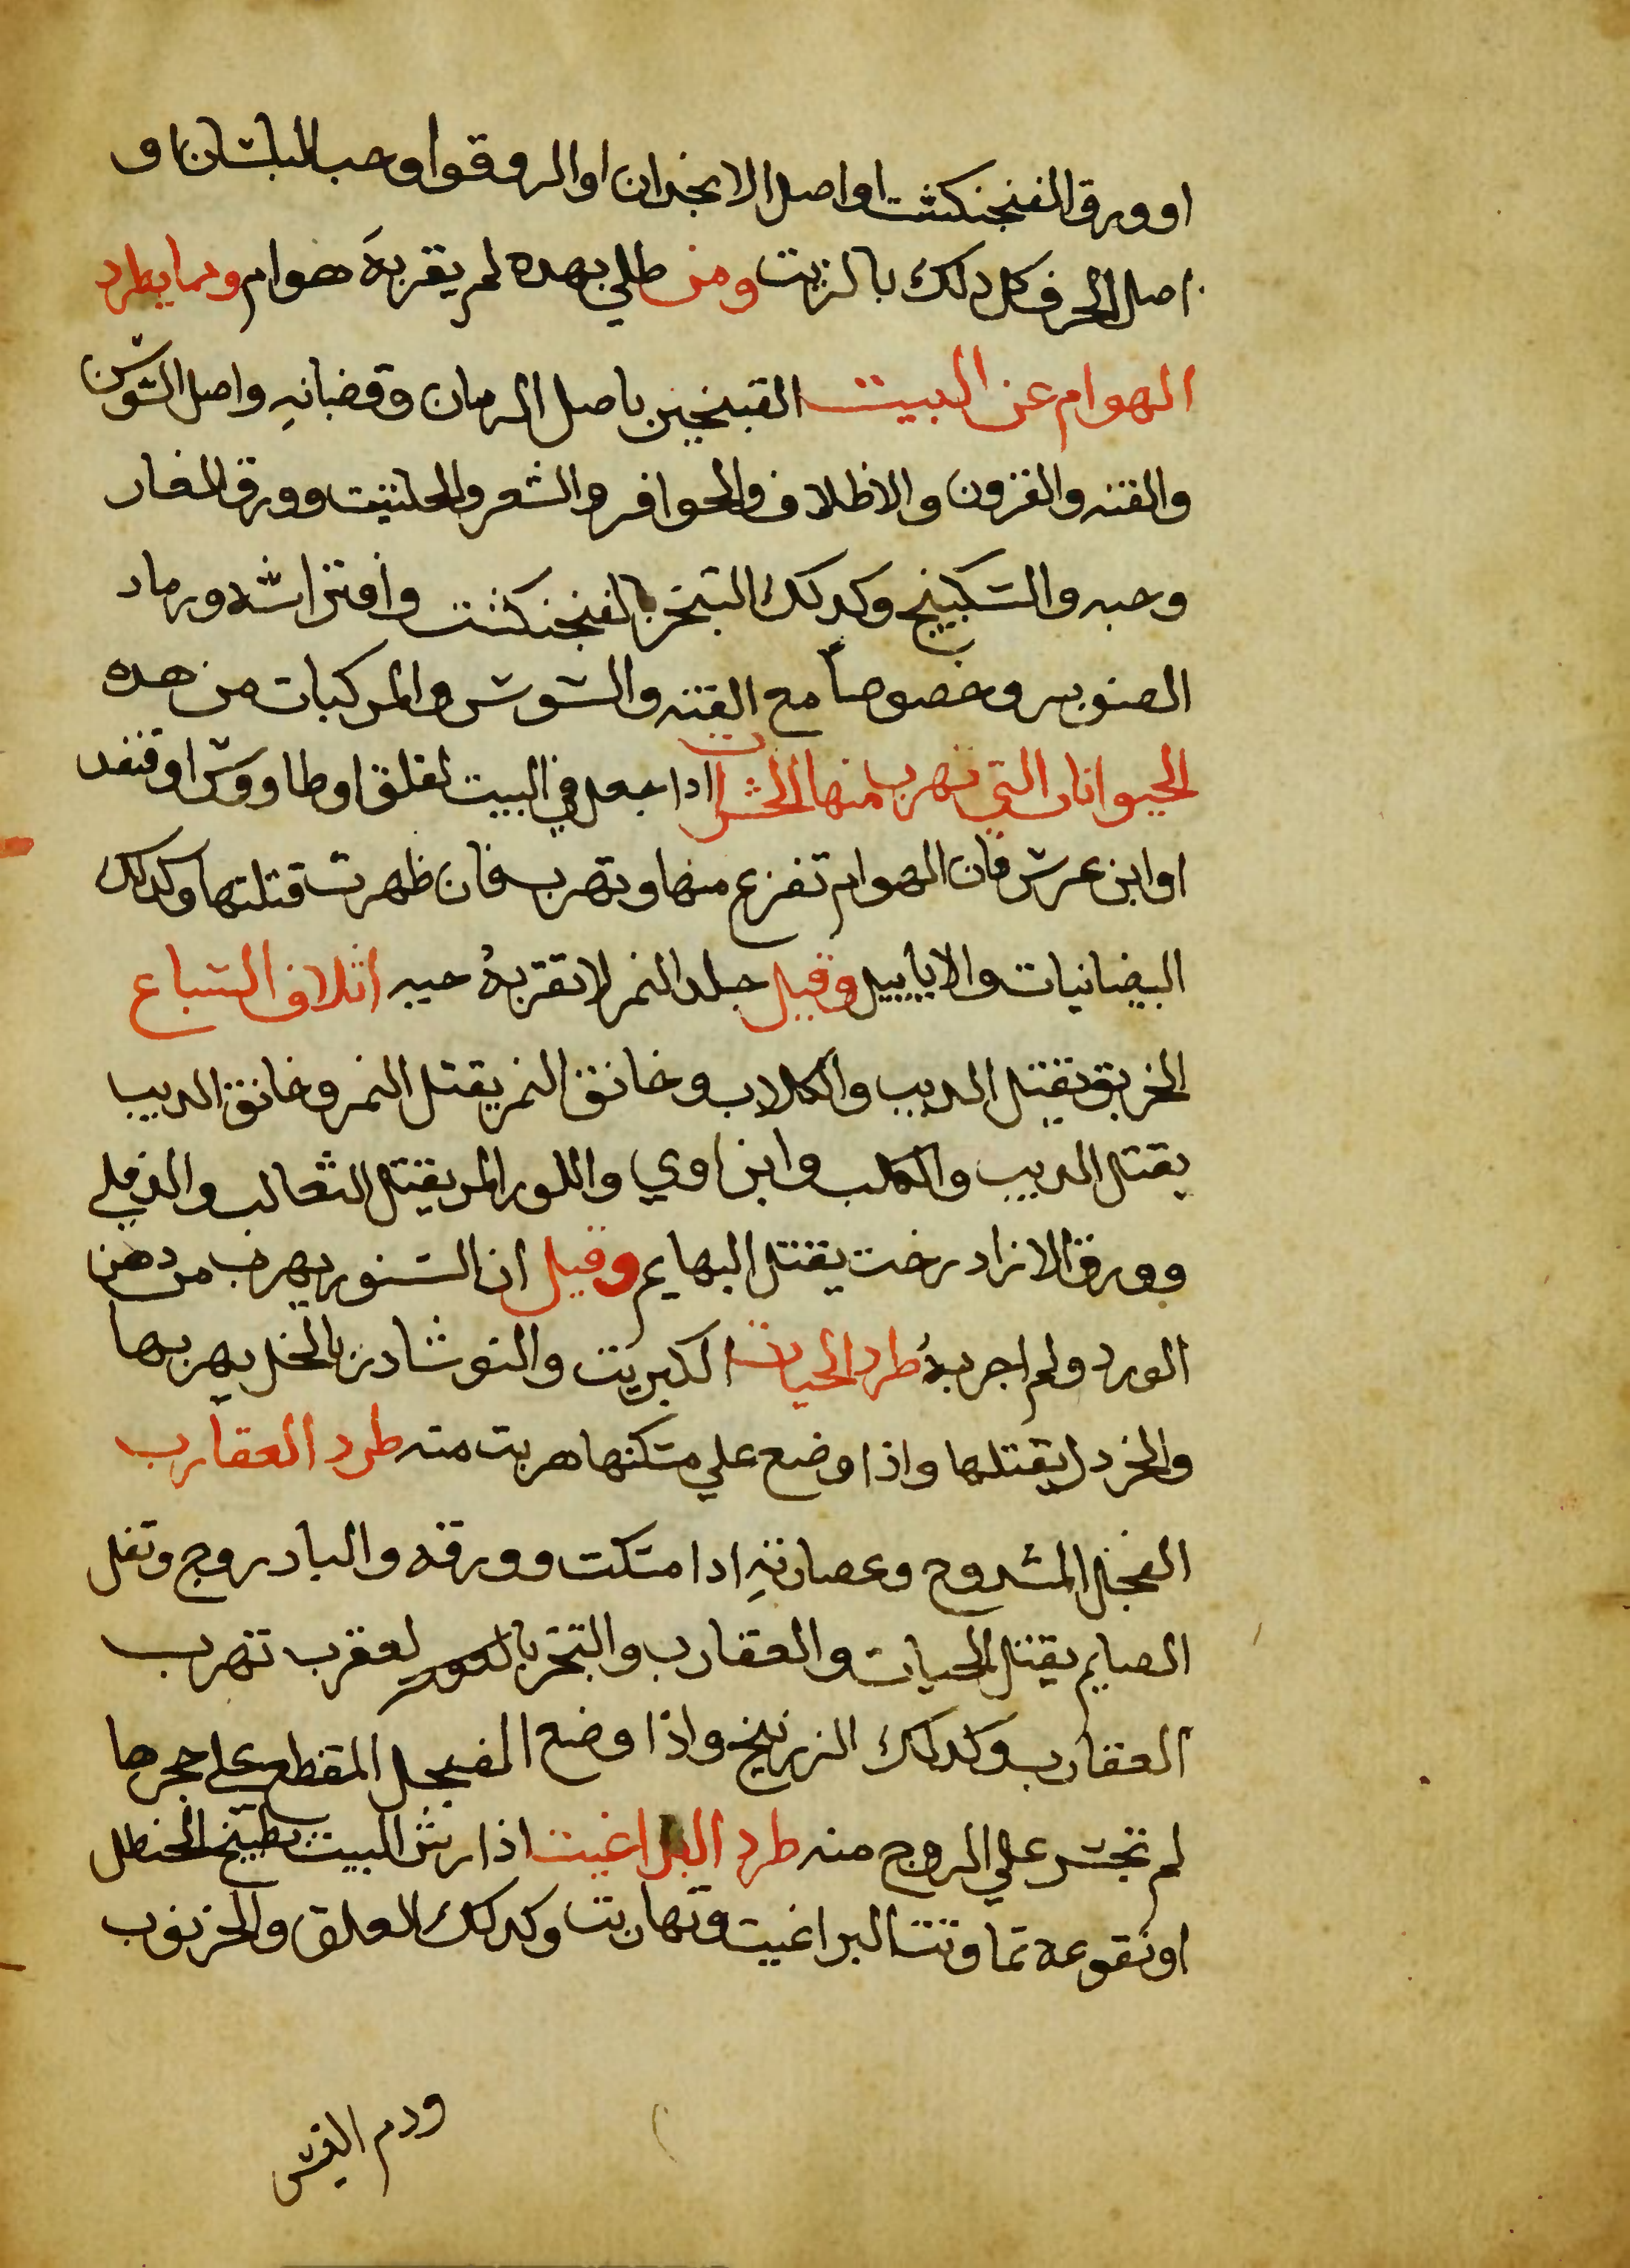 او ورق الفنجنكشت او اصل الانجدان او الدوقوا وحب البلسان او
اصل الحرف كل دلك بالزيت ومن طلي بهده لم يقربهَ هوام ومما يطرد
الهوام عن البيت التبخير باصل الرمان وقضبانهِ واصل السوسن
والقنه والقرون والاظلاف والحوافر والشعر والحلتيت وورق الغار
وحبه والسكبينج وكدلك التبخر بالفنجنكشت وافتراشه ورماد
الصنوبر وخصوصاً مع القنه والسوسن والمركبات من هده
الحيوانات التي تهرب منها الحشرات ادا جعل في البيت لقلق او طاووس او قنفد
او ابن عرس فان الهوام تفزع منها وتهرب فان ظهرت قتلتها وكدلك
البيضانيات والايابيل وقيل جلد النمر لا تقربهُ حيه اتلاف السباع
الخربق يقتل الديب والكلاب وخانق النمر يقتل النمر وخانق الديب
يقتل الديب والكلب وابن اوي واللوز المر يقتل الثعالب والدفلي
وورق الازادرخت يقتل البهايم وقيل ان السنور يهرب من دهن
الورد ولم اجربهُ طرد الحيات الكبريت والنوشادر بالخل يهربها
والخردل يقتلها واذا وضع علي مسكنها هربت منه طرد العقارب
الفجل المشدوخ وعصارتهِ ادا مسكت وورقه والبادروج وتفل
الصايم يقتل الحيات والعقارب والتبخر بالعقرب تهرب
العقارب وكدلك الزرنيخ واذا وضع الفجل المقطع علي حجرها
لم تجسر علي الخروج منه طرد البراغيت اذا رش البيت بطبيخ الحنظل
او نقوعه تماوتت البراغيت وتهاربت وكدلك العلق والخرنوب
ودم التيس